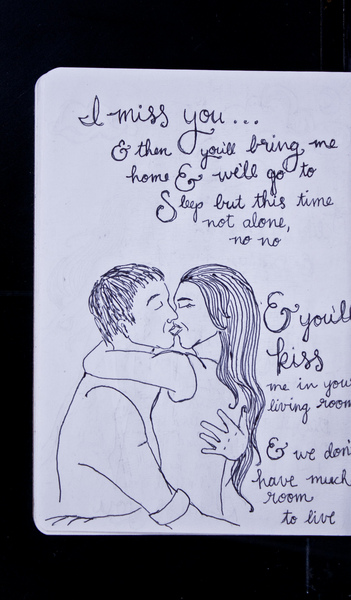 I miss you...
& then you'll bring me
home & we'll go to
Sleep but this time
not alone,
no no
& you'll
kiss
me in you
living room
& we don'
have much
room
to live